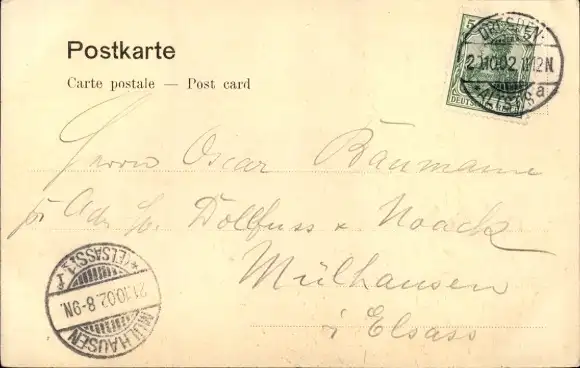 Postkarte
Carte postale — Post card
5
DRESDEN-
20.10.02.11-12N.
*ALTST.8a
DEUTSCHES
Herrn Oscar Baumann
p. Adr. Hr. Dollfuss & Noack
Mülhausen
i Elsass
MÜLHAUSEN
21.10.02.8-9N.
*(ELSASS)1*